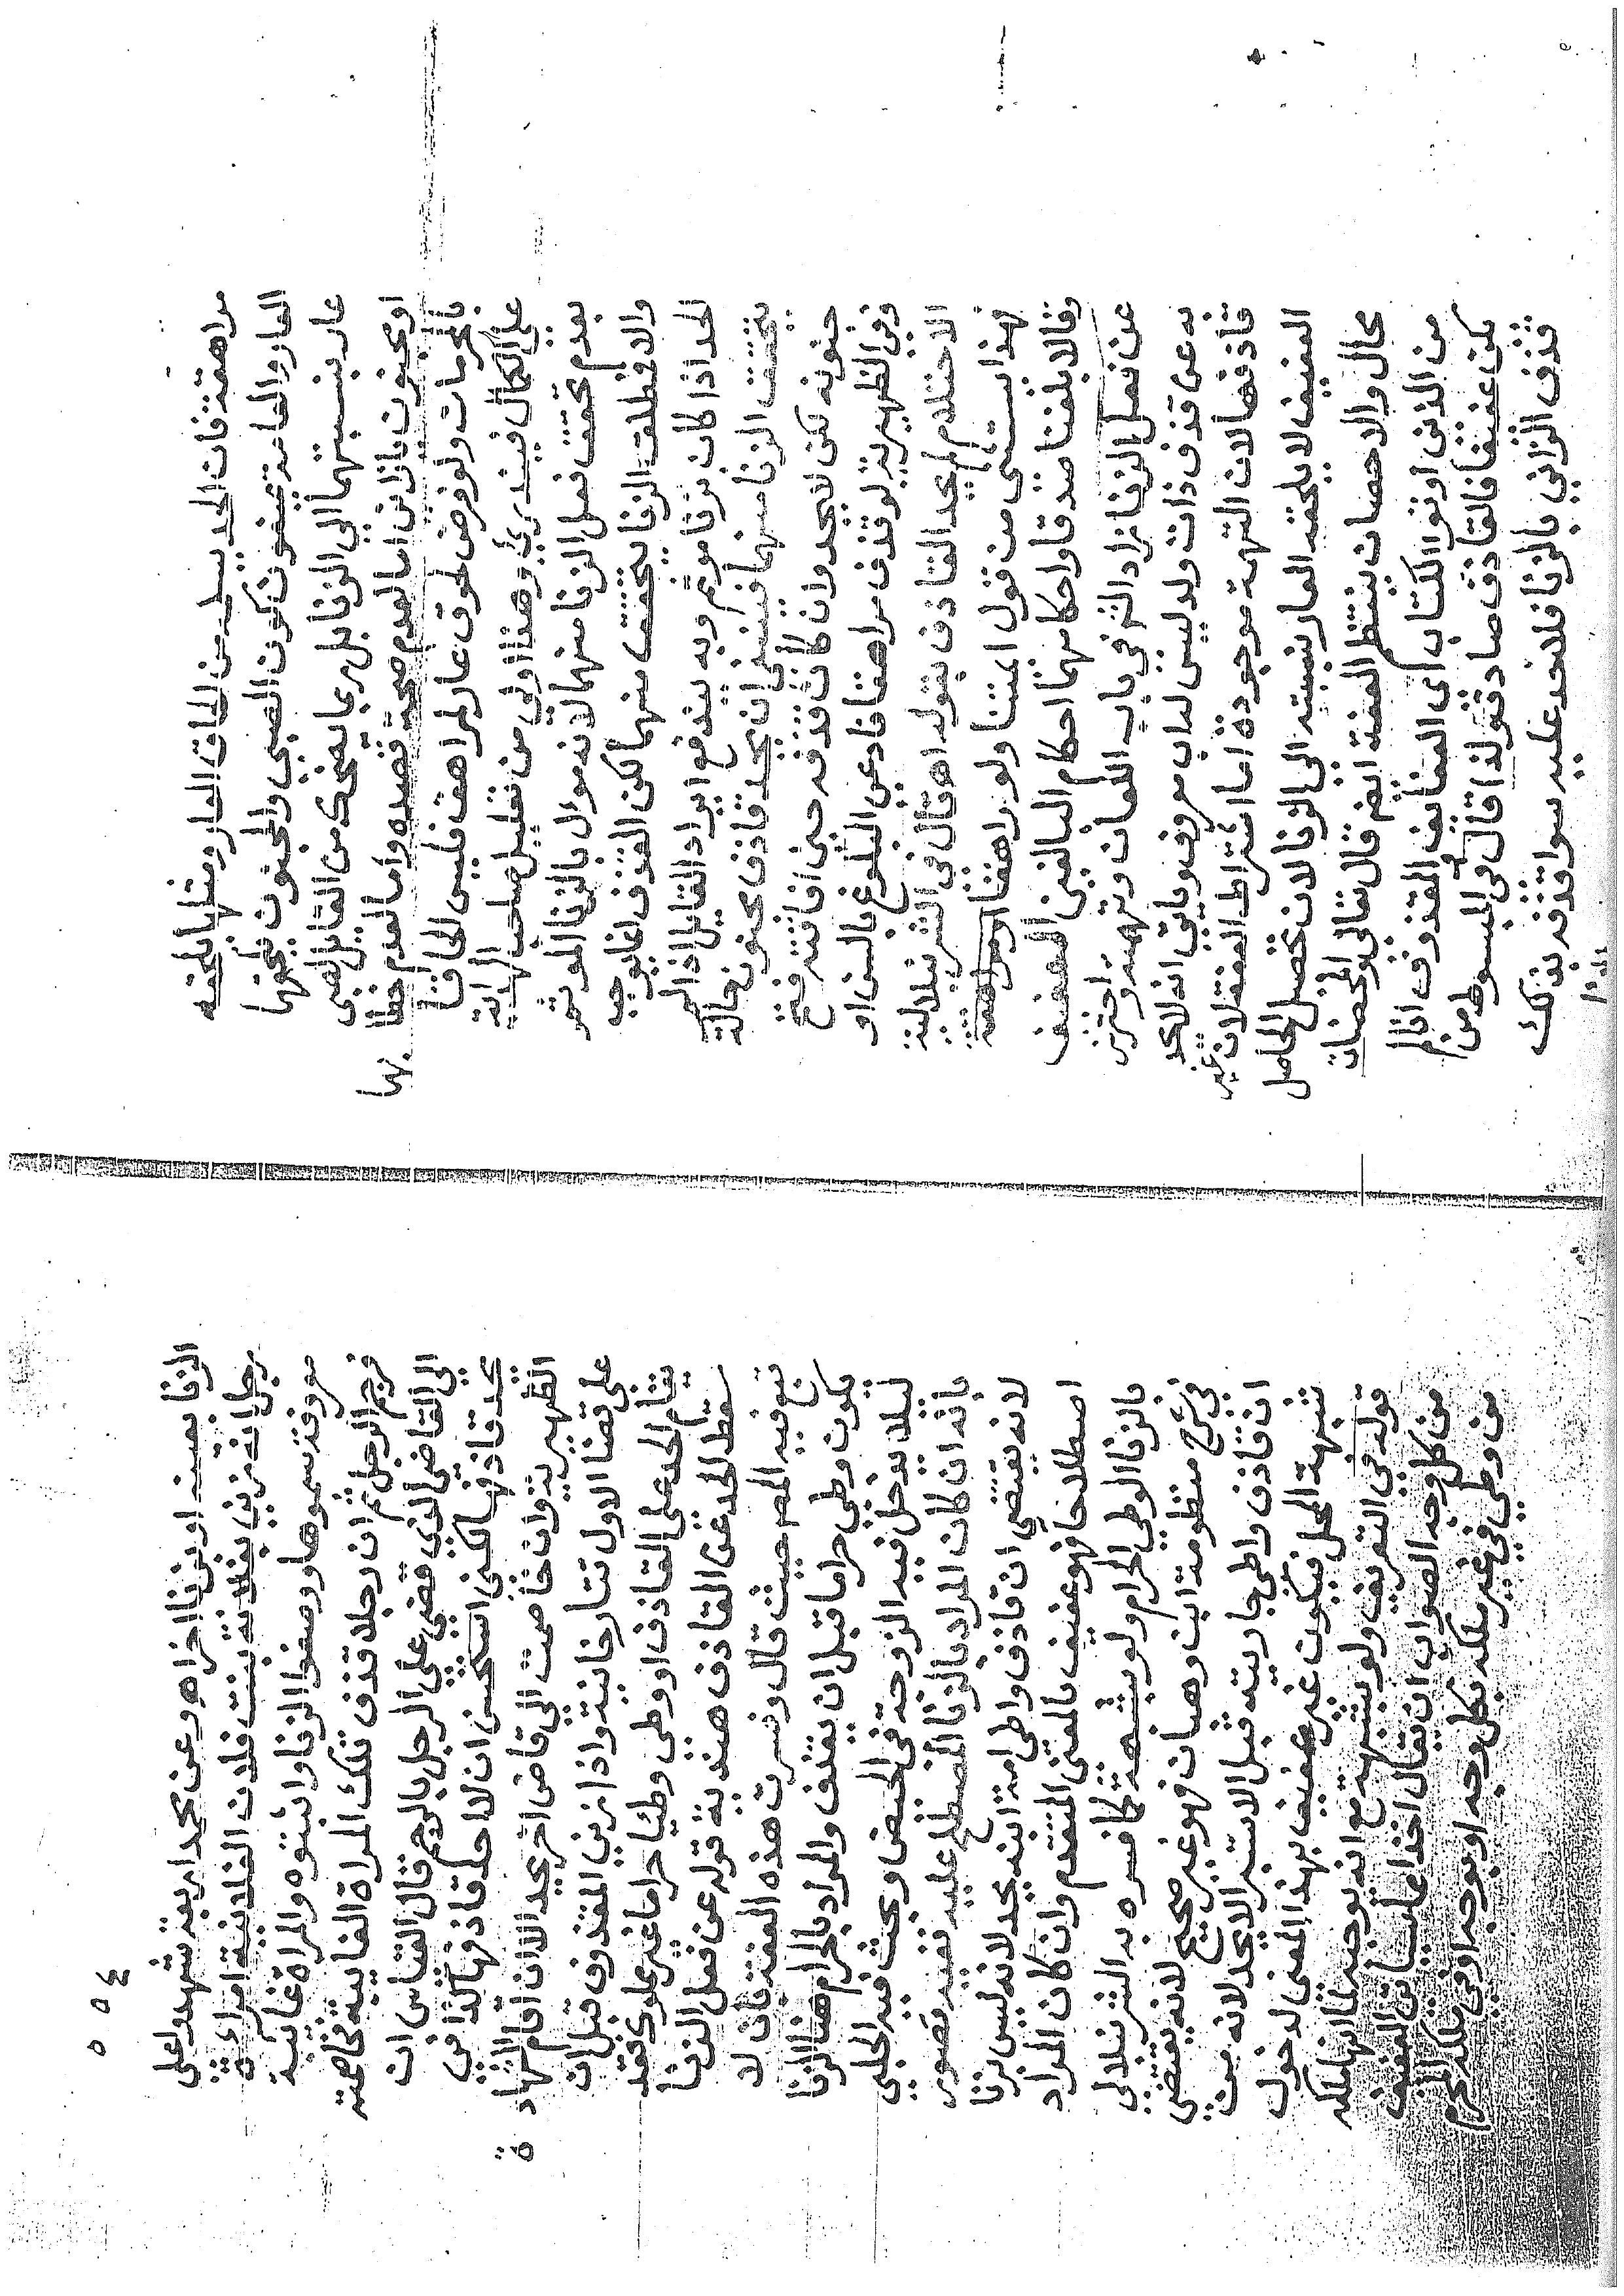 مراهقة فان الحد بسلـ من الحاق العار ومثلها يلحقه
العار والعامة يعيفون كون الصبي والمجنون يلحقهما
عار بنسبتهما الي الزنا بل ربما يضحك من القايل لصبى
او مجنون يا زانى اما لعدم صحة قصده واما لعدم خطا
بهما
بالمحرمات ولو فرض لحوق عار لمراهق فليس الحاقا
علي الكمال فيندرئ وهذا اولي من تعليل صاحب الهداية
بعدم تحقق فعل الزنا منهما لانه موال بالزنا الموثم
والا فمطلق الزنا يتحقق منهما لكن القذف انما يوجب
الحد اذا كان بزنا موثم وبه يندفع ايراد القايل اذا لم
يتحقق الزنا منهما فينبغى ان يحد قاذف مجنون حالة
جنونه لكن لا يحد وان كان قذفه حتى افاقته فتح
وفي الظهيرية لو قذف مراهقا فادعى البلوغ بالسن او
الاحتلام لم يحد القاذف بقوله اهـ قال في الشرنبلالية
بهذا يستثنى من قول ايمتنا ولو راهقا
وقالا بلغنا صدقا واحكامهما احكام البالغين العفيف
عن فعل الزنا زاد الشرفي باب اللعان وتهمته واحترز
به عن قذف ذات ولد ليس له اب معروف وياتي انه لا يحد
قاذفها لان التهمة موجودة اما اشتراط العفة لان غير
العفيف لا يلحقه العار بنسبته الي الزنا لان تحصيل الحاصل
محال والاحصان ينتظم العفة ايضم قال تعالى والمحصنات
من الذين اوتوا الكتاب اى العفايف المقذوف اذا لم
يكن عفيفا فالقاذف صادق قوله قال في المبسوط من
قذف الزاني بالزنا فلا حد عليه سوا قذفه بذلك
الزنا
٥٥٤
الزنا بعينه او بزنا اخر اهـ وعن محمد اربعة شهدوا على
رجل انه زني بفلانة بنت فلان الفلانية امراءة
معروفة سموها ووصفوا الزنا واثبتوه والمراة غايبة
فرجم الرجل ثم ان رجلا قذف تلك المراة الغايبة فخاصمته
الى القاضى الذي قضي علي الرجل بالرجم قال القياس ان
يحد قاذفها لكنى استحسن ان لا احد قاذفها كذا في
الظهيرية وان خاصمت الي قاض اخر يحد الا ان اقام الشهادة
على قضا الاول تتارخانية واذا زني المقذوف قبل ان
يقام الحد على القاذف او وطى وطئا حراما غير مملوك فقد
سقط الحد عن القاذف هندية قوله عن فعل الزنا
تبع فيه المص حيث قال وفسرت هذه العفة بان لا
يكون وطي حراما قبل ان يقذف والمراد بالحرام هنا الزنا
ليلا يدخل فيه الزوجة في الحيض وبحث فيه الحلبي
بانه ان كان المراد بالزنا المصطلح عليه ففيه قصور
لانه يقتضي ان قاذف واطي امة ابنه يحد لانه ليس بزنا
اصطلاحا فهو عفيف بالمعنى المتقدم وان كان المراد
بالزنا الوطي الحرام ولو بشبهة كما فسره به الشرنبلالي
في شرح منظومة ابن وهبان فهو غير صحيح لانه يقتضى
ان قاذف واطى جاريته قبل الاستبرا لا يحد لانه من
شبهة المحل فيكون غير عفيف بهذا المعنى لدخول
قوله في التعريف ولو بشبهة مع انه يوجد لقا انها ملكه
من كل وجه الصواب ان يقال اخذا مما سياتى العفيف
من وطي في غير ملكه بكل وجه او بوجه او في ملكه المحرم